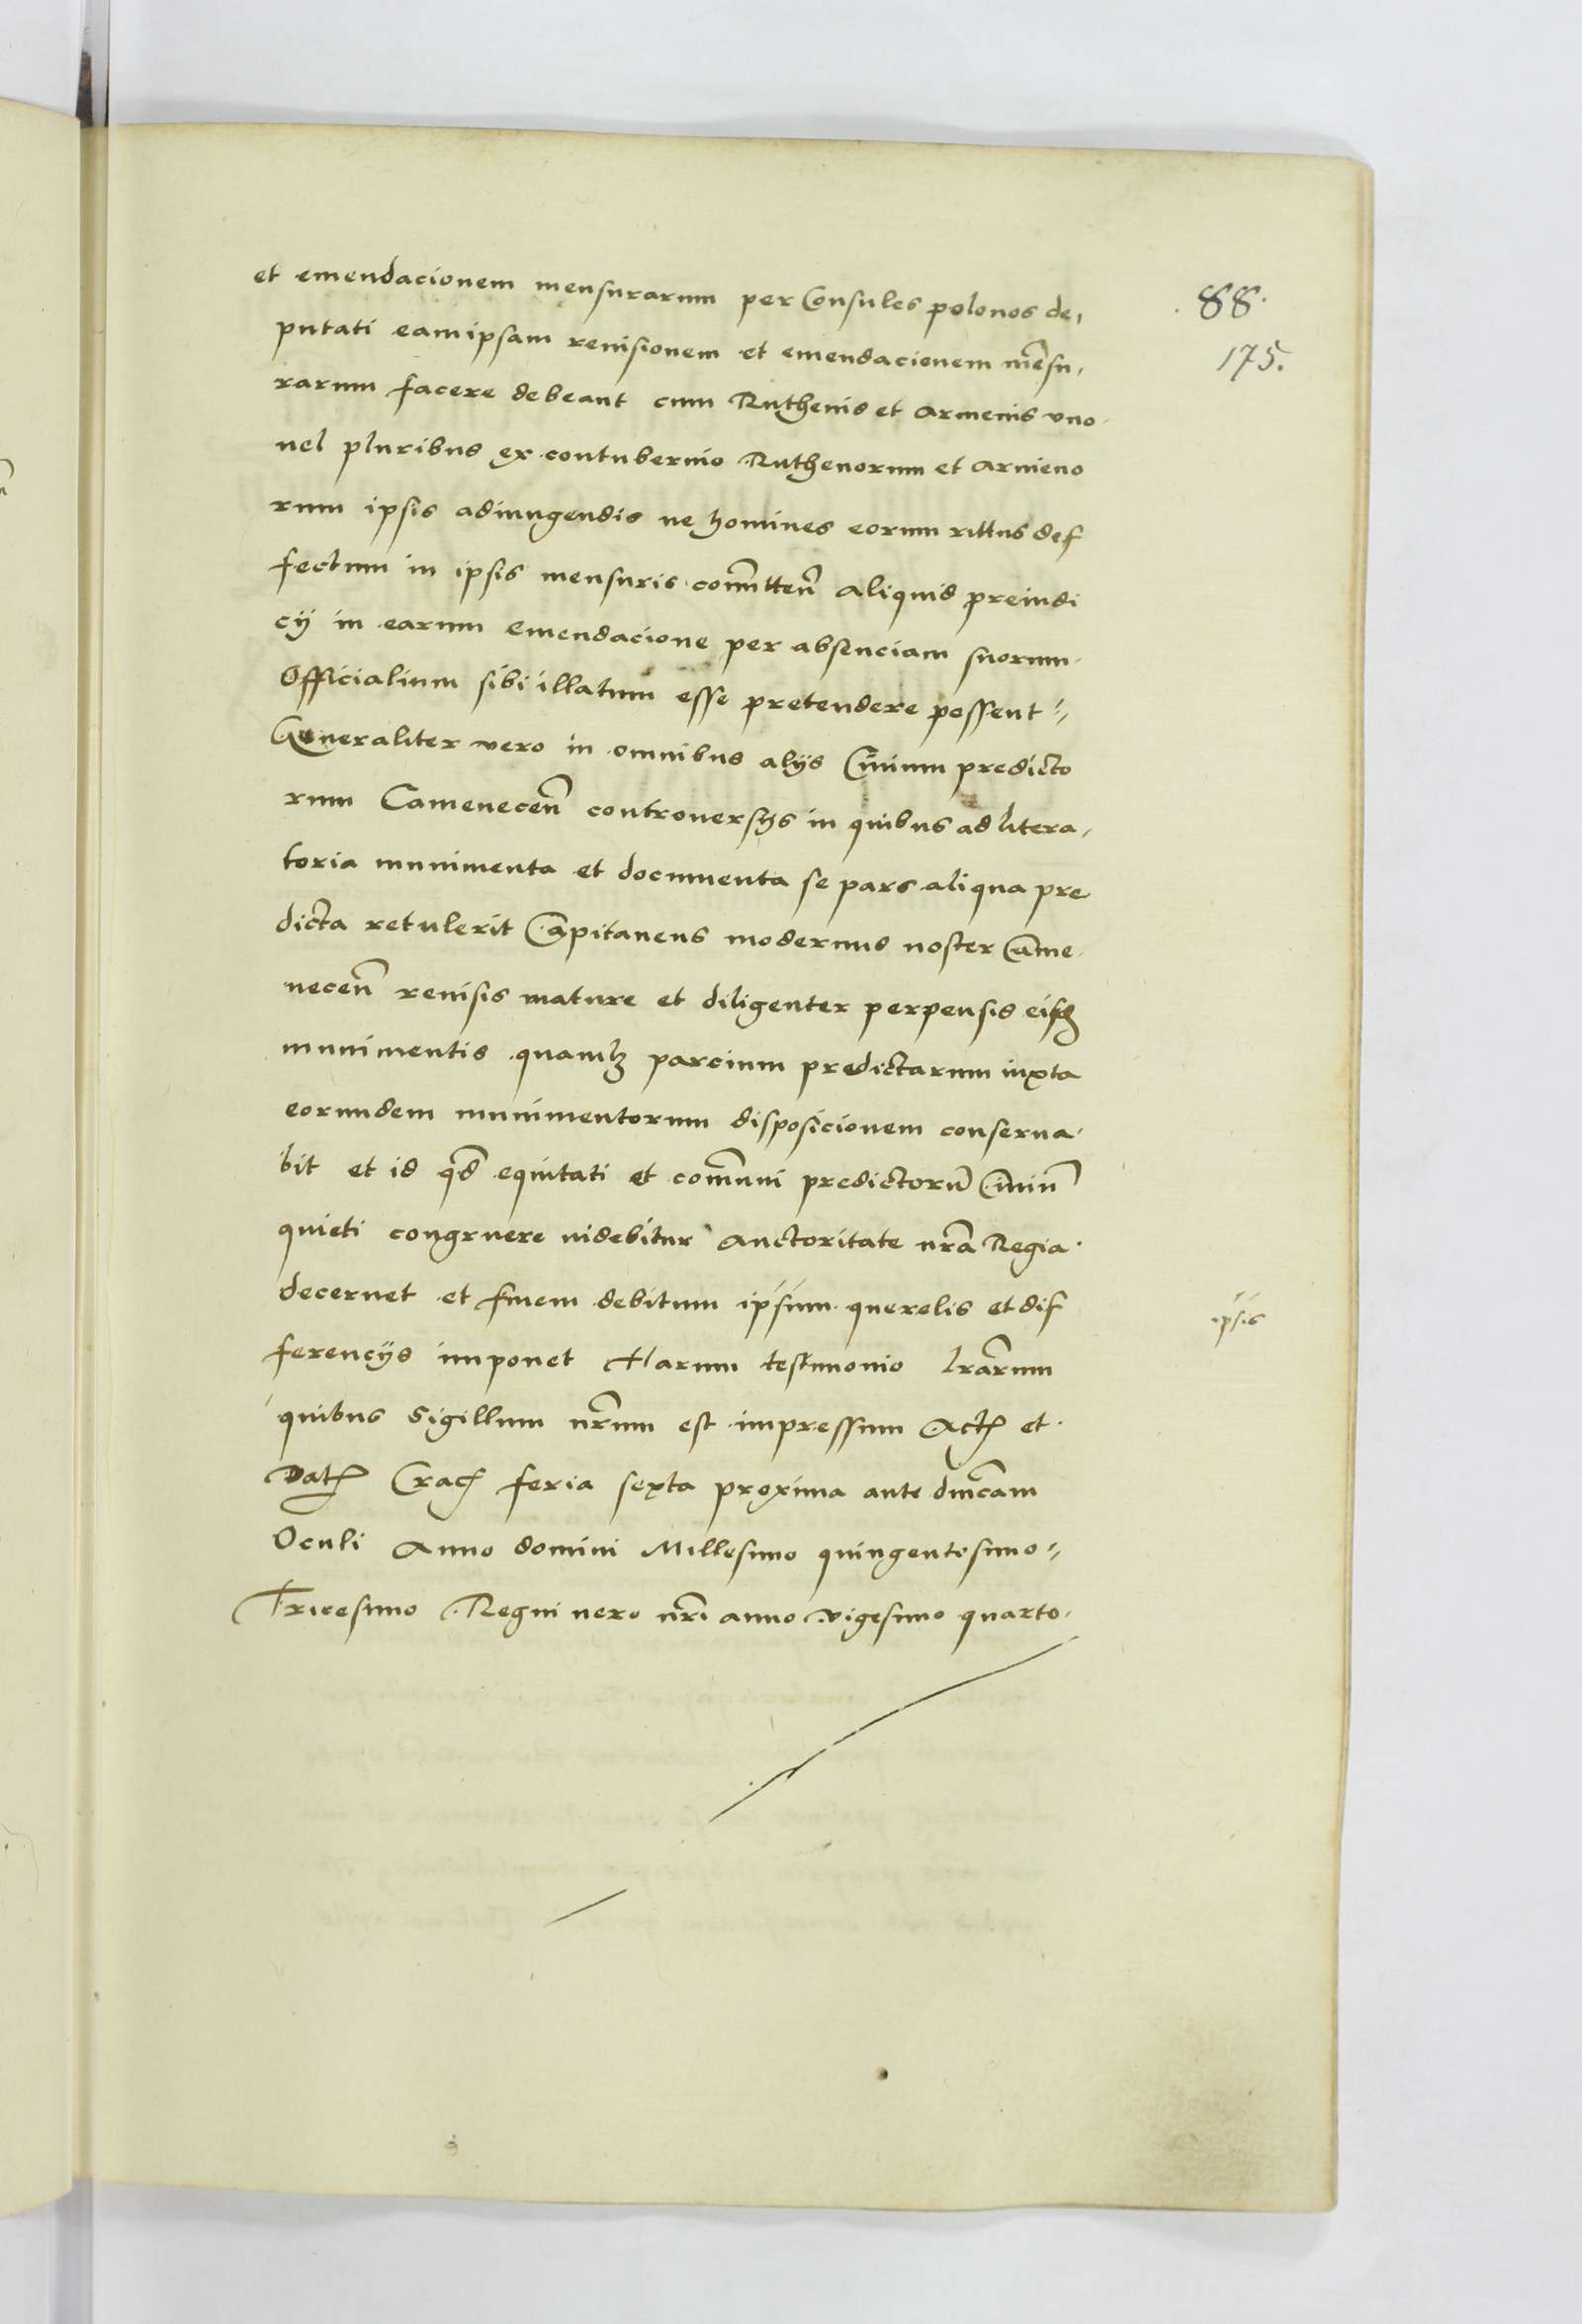 et emendacionem mensurarum per Consules polonos de,
88.
putati eamipsam reuisionem et emendacionem mēsu,
175.
rarum facere debeant cum Ruthenis et Armenis vno
uel pluribus ex contubernio Ruthenorum et Armeno
rum ipsis adiungendis ne homines eorum rittus def
fectum in ipsis mensuris comitten̄ aliquid preiudi
cij in earum Emendacione per absenciam suorum
Officialium sibi illatum esse pretendere possent
Generaliter vero in omnibus alijs Ciuium predicto
rum Camenecen̄ controuersijs in quibus ad litera,
toria munimenta et documenta se pars aliqua pre
dicta retulerit Capitaneus modernus noster Came
necen̄ reuisis mature et diligenter perpensis eisdē
munimentis quamlꝫ parcium predictarum iuxta
eorundem munimentorum disposicionem conserua
bit et id qd̄ equitati et com̄uni predictorū Ciuiū
quieti congruere uidebitur Auctoritate nr̄a Regia
decernet et finem debitum ipsum querelis et dif
ipsis
ferencijs imponet Harum testimonio lr̄arum
quibus Sigillum nr̄um est impressum Actꝭ et
Datꝭ Cracꝭ feria sexta proxima ante dn̄icam
Oculi Anno domini Millesimo quingentesimo
Tricesimo Regni uero nr̄i anno vigesimo quarto